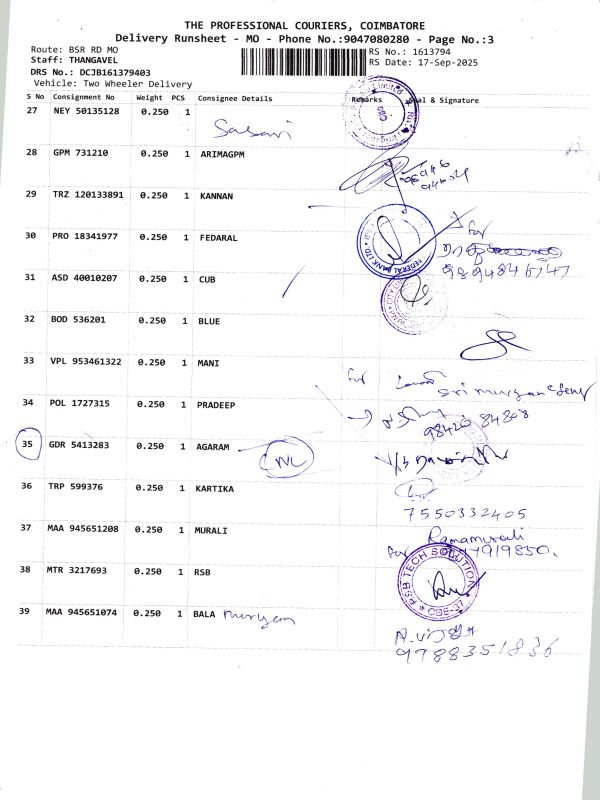 THE PROFESSIONAL COURIERS, COIMBATORE
Delivery Runsheet - MO - Phone No.:9047080280 - Page No.:3
Route: BSR RD MO
Staff: THANGAVEL
DRS No.: DCJB161379403
Vehicle: Two Wheeler Delivery
RS No.: 1613794
RS Date: 17-Sep-2025
S No Consignment No Weight PCS Consignee Details Remarks Seal & Signature
27 NEY 50135128 0.250 1
28 GPM 731210 0.250 1 ARIMAGPM
29 TRZ 120133891 0.250 1 KANNAN
30 PRO 18341977 0.250 1 FEDARAL
FEDERAL BANK LTD.
for
9894846747
31 ASD 40010207 0.250 1 CUB
32 BOD 536201 0.250 1 BLUE
33 VPL 953461322 0.250 1 MANI
for
Sri muryan
34 POL 1727315 0.250 1 PRADEEP
98420 84808
35 GDR 5413283 0.250 1 AGARAM
NL
36 TRP 599376 0.250 1 KARTIKA
7550332405
37 MAA 945651208 0.250 1 MURALI
Ramamurali
for
38 MTR 3217693 0.250 1 RSB
RSB TECH SOLUTION
CBE-37
39 MAA 945651074 0.250 1 BALA muryan
9788351836